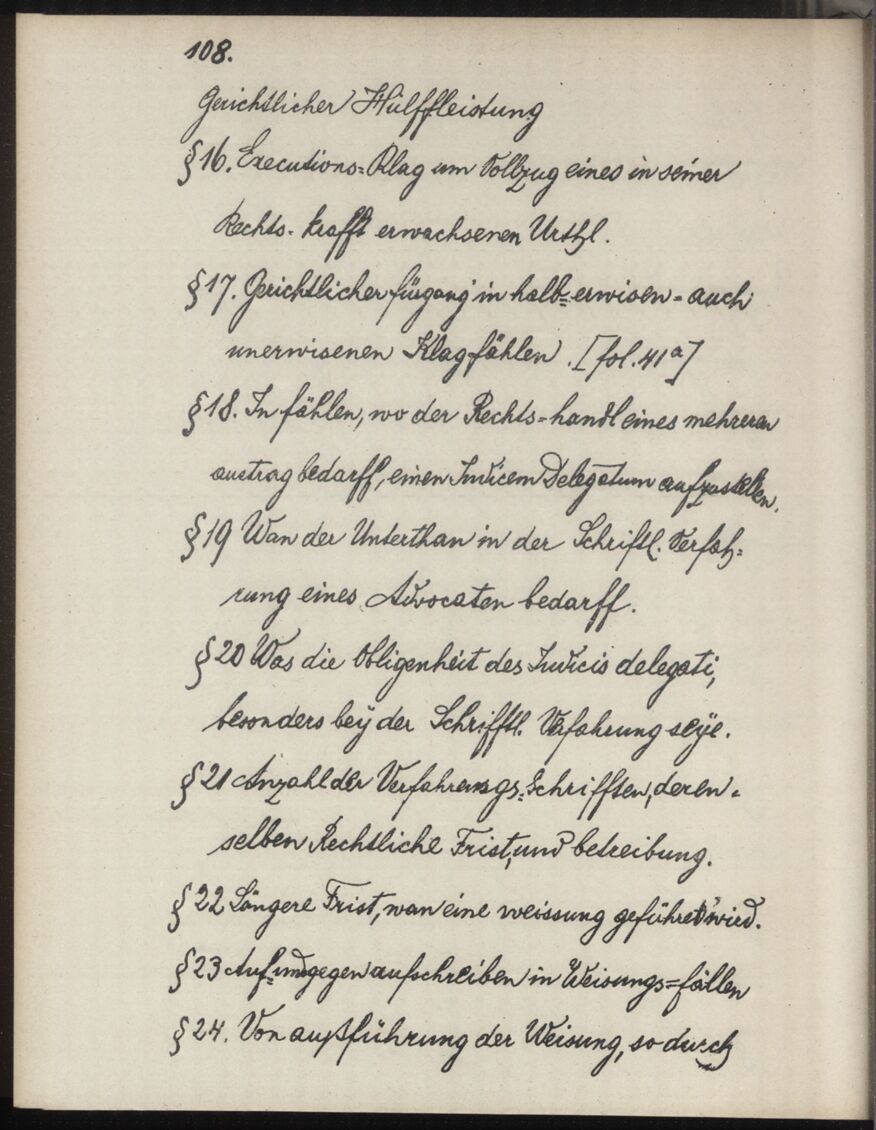 108.
Gerichtlicher Hülffleistung
§16. Executions=Klag um Vollzug eines in seiner
Rechts-krafft erwachsenen Urthl.
§17. Gerichtlicher fürgang in halb=erwisen=auch
unerwisenen Klagfählen. [fol.41ª]
§18. In fählen, wo der Rechts=handl eines mehreren
austrag bedarff, einen Iudicem Delegatum aufzustellen.
§19 Wan der Unterthan in der Schriftl. Verfah=
rung eines Advocaten bedarff.
§20 Was die Obligenheit des Iudicis delegati,
besonders beÿ der Schrifftl. Verfahrung seÿe.
§21 Anzahl der Verfahrungs=Schrifften, deren=
selben Rechtliche Frist, und betreibung.
§22 Längere Frist, wan eine weissung geführet wird.
§23 Auf=und gegen aufschreiben in Weisungs=fällen
§24. Von außführung der Weisung, so durch